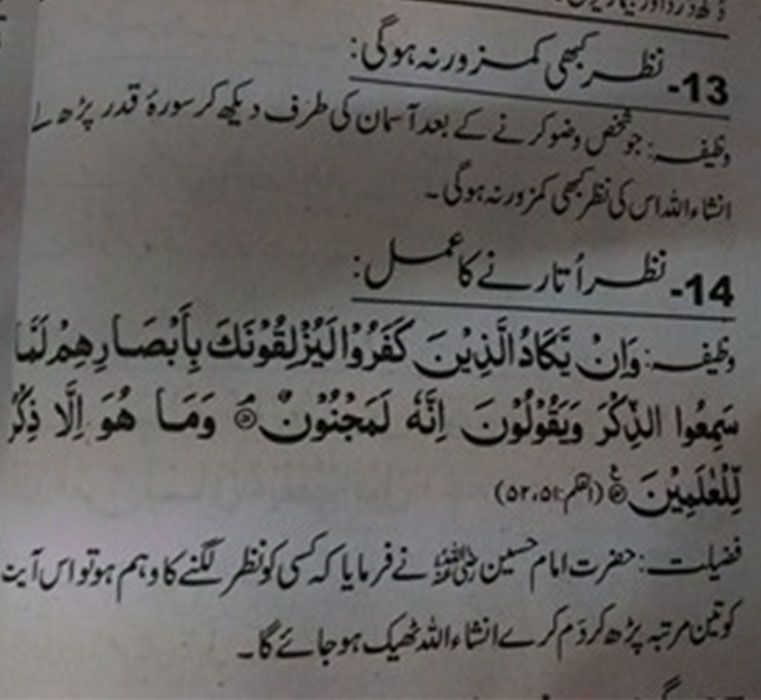 دکھ درد اور بیماریوں
13- نظر کبھی کمزور نہ ہوگی:
وظیفہ: جو شخص وضو کرنے کے بعد آسمان کی طرف دیکھ کر سورۂ قدر پڑھ لے
انشاء اللہ اس کی نظر کبھی کمزور نہ ہوگی۔
14- نظر اُتارنے کا عمل:
وظیفہ: وَاِنْ يَّكَادُ الَّذِيْنَ كَفَرُوْا لَيُزْلِقُوْنَكَ بِاَبْصَارِهِمْ لَمَّا
سَمِعُوا الذِّكْرَ وَيَقُوْلُوْنَ اِنَّهٗ لَمَجْنُوْنٌ ۝ وَمَا هُوَ اِلَّا ذِكْرٌ
لِّلْعٰلَمِيْنَ ۝ (القلم:۵۲،۵۱)
فضیلت: حضرت امام حسین رضی اللہ عنہ نے فرمایا کہ کسی کو نظر لگنے کا وہم ہو تو اس آیت
کو تین مرتبہ پڑھ کر دَم کرے انشاء اللہ ٹھیک ہو جائے گا۔